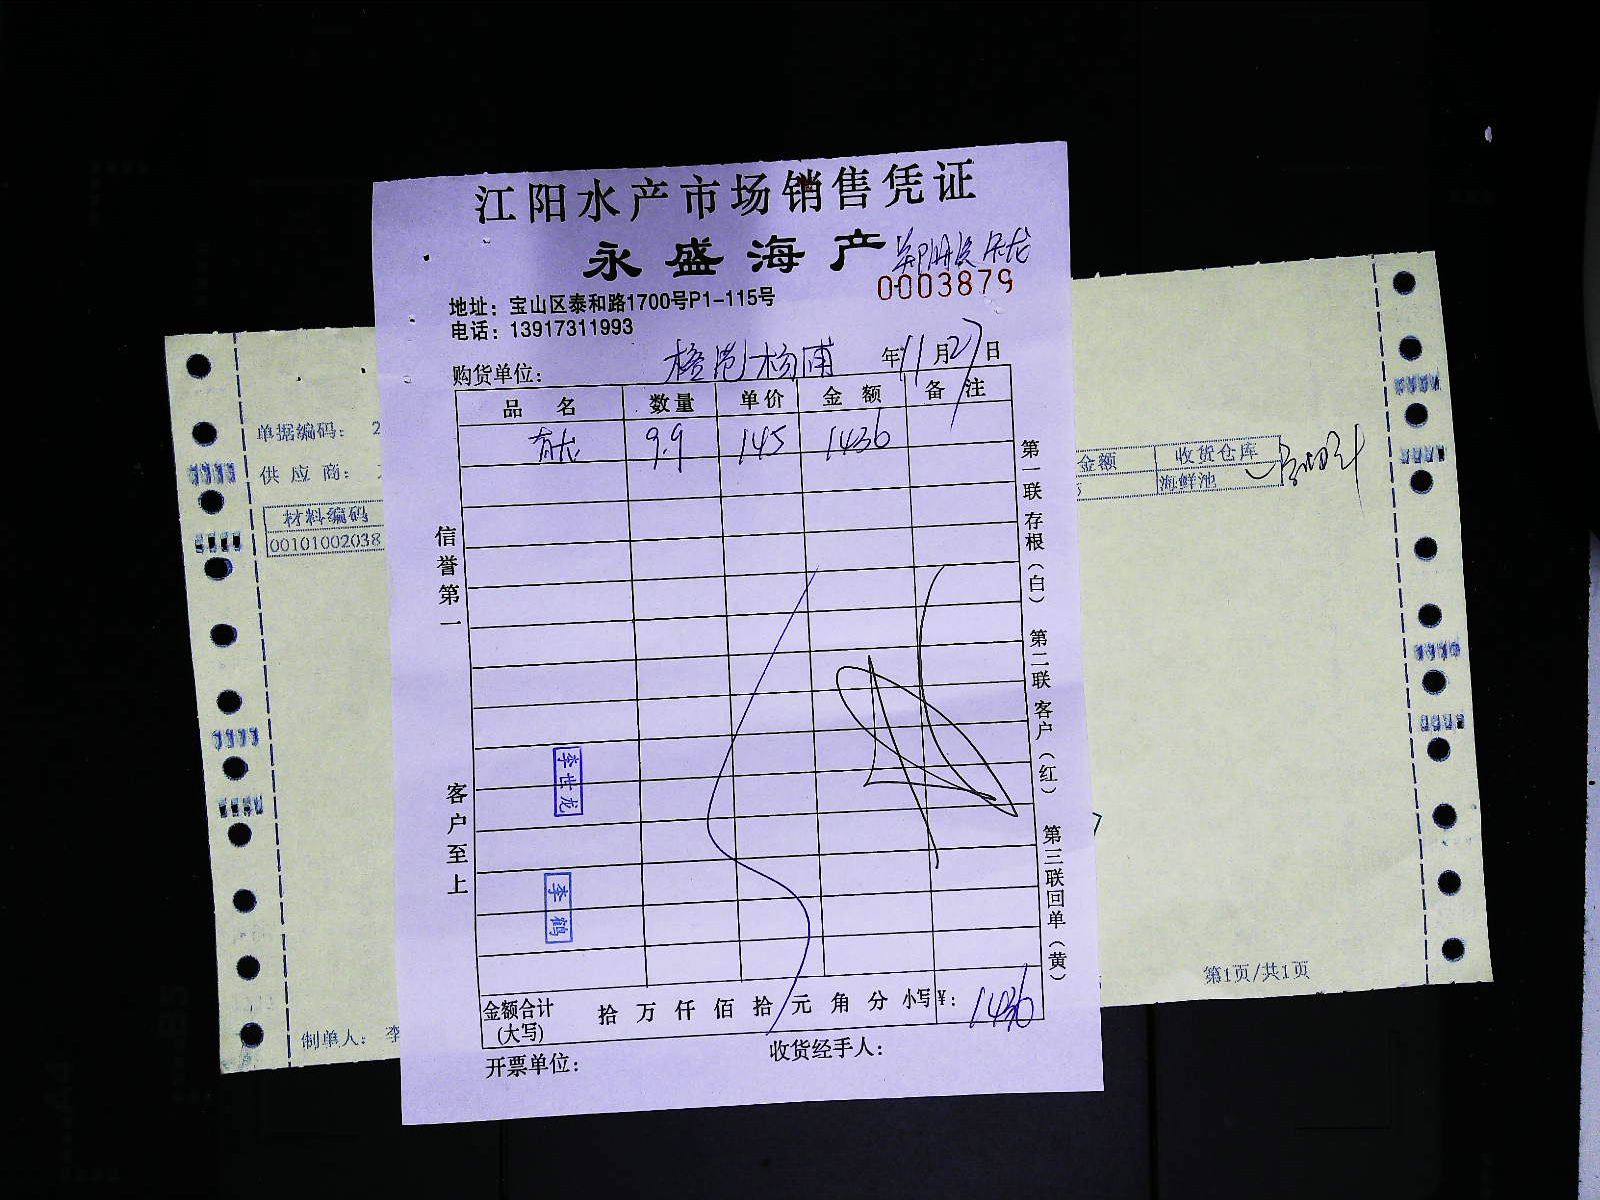 江阳水产市场销售凭证
永盛海产
0003879
地址：宝山区泰和路1700号P1-115号
电话：13917311993
购货单位： 杨浦 年11月27日
品名 数量 单价 金额 备注
青龙 9.9 145 1436
信誉第一
客户至上
第一联存根（白） 第二联客户（红） 第三联回单（黄）
李世龙
李鹤
金额合计（大写） 拾 万 仟 佰 拾 元 角 分 小写¥： 1436
开票单位： 收货经手人：
单据编码： 2
供应商：
材料编码
00101002038
金额 收货仓库
海鲜池
制单人： 李
第1页/共1页